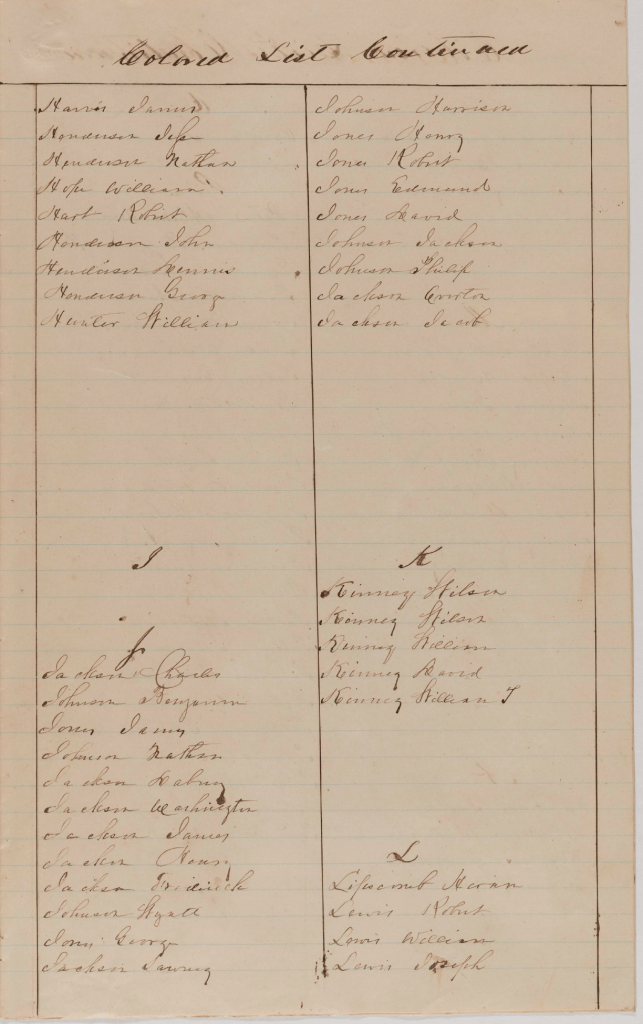 Colored List Continued
Harris James
Henderson Jesse
Henderson Nathan
Hope William
Hart Robert
Henderson John
Henderson Dennis
Henderson George
Hunter William
I
J
Jackson Charles
Johnson Benjamin
Jones James
Johnson Nathan
Jackson Dabney
Jackson Washington
Jackson James
Jackson Henry
Jackson Fredrick
Johnson Wyatt
Jones George
Jackson Tawney
Johnson Harrison
Jones Henry
Jones Robert
Jones Edmund
Jones David
Johnson Jackson
Johnson Philip
Jackson
Jackson Jacob
K
Kinney Wilson
Kinney Wilson
Kinney William
Kinney David
Kinney William T
L
Lipscomb Hiram
Lewis Robert
Lewis William
Lewis Joseph